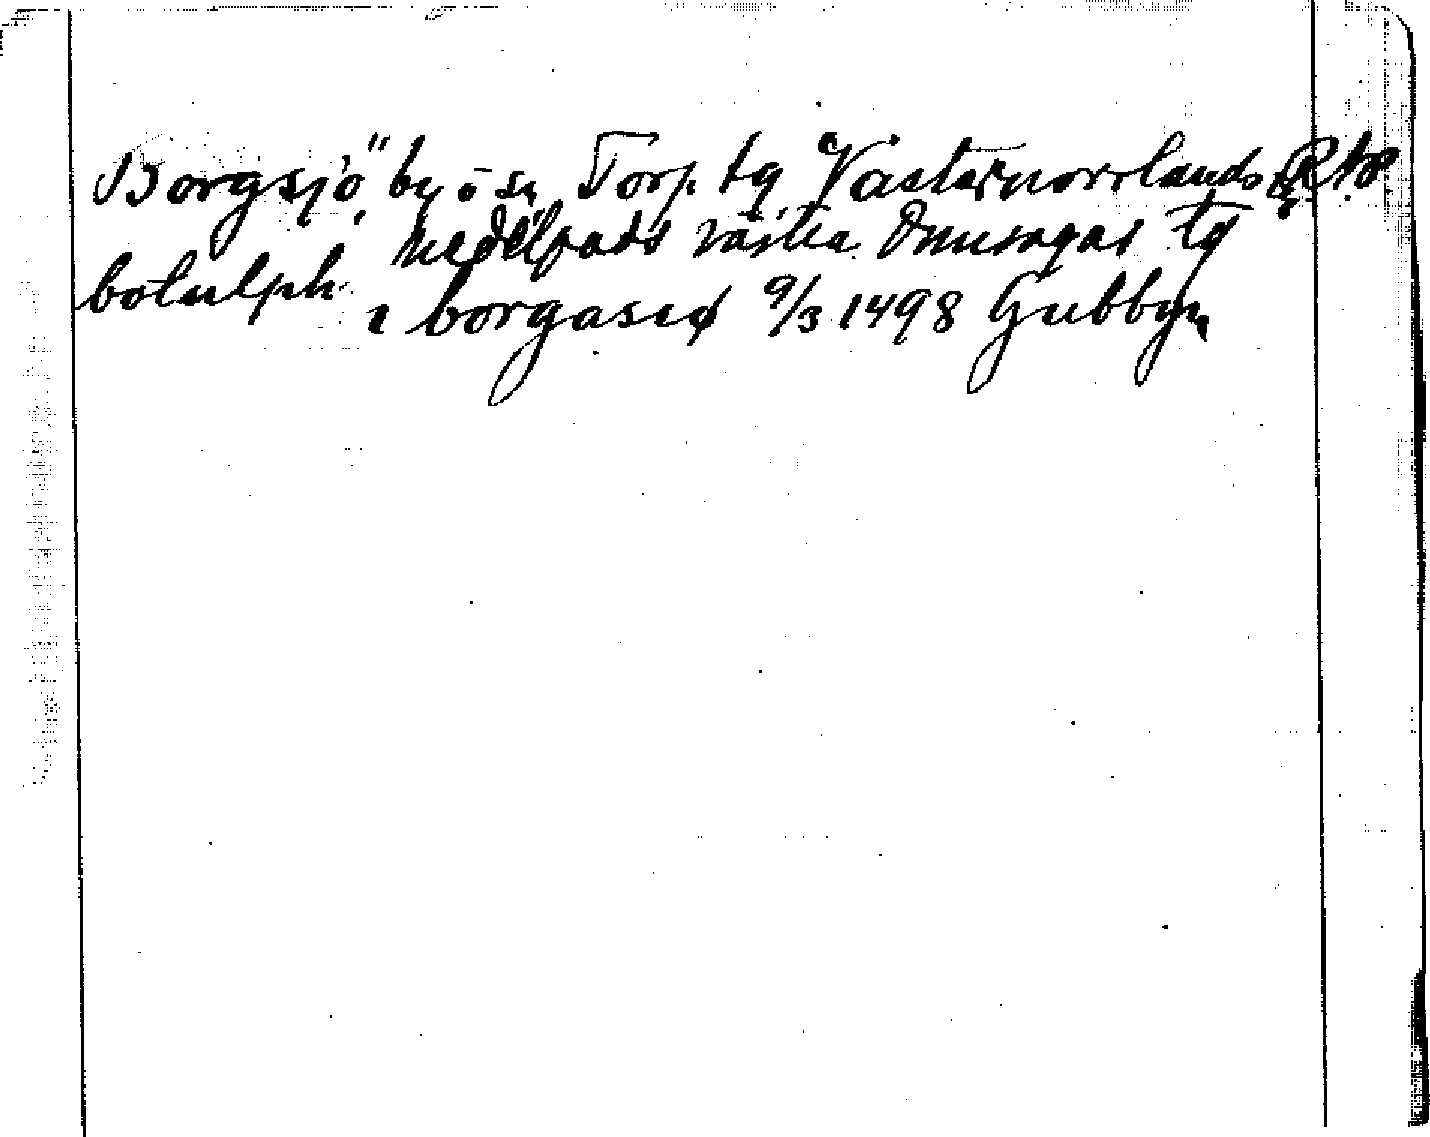 Borgsjö, by o sn Torp tg Västernorrlands
Medelpads västra Domsagas tg
botulph i borgasiø 9/3 1498 Gubbyn